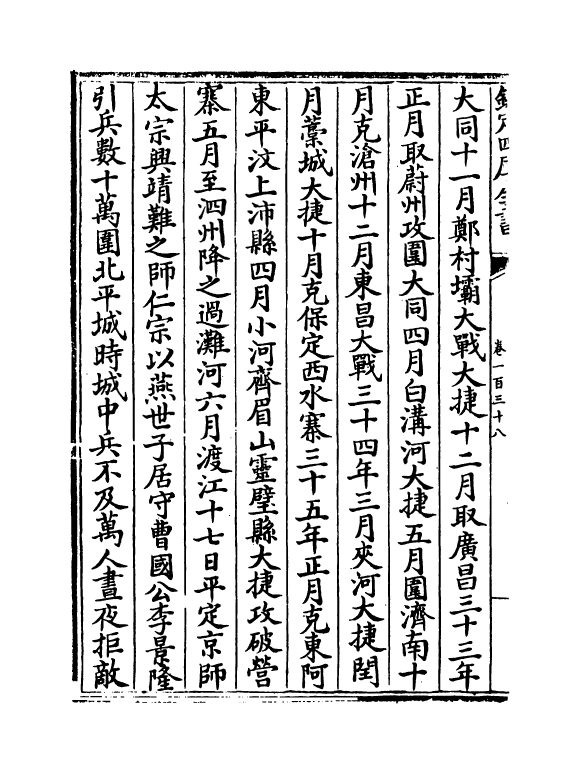 欽定四庫全書
卷一百三十八
大同十一月鄭村壩大戰大捷十二月取廣昌三十三年
正月取蔚州攻圍大同四月白溝河大捷五月圍濟南十
月克滄州十二月東昌大戰三十四年三月夾河大捷閏
月藁城大捷十月克保定西水寨三十五年正月克東阿
東平汶上沛縣四月小河齊眉山靈璧縣大捷攻破營
寨五月至泗州降之過灘河六月渡江十七日平定京師
太宗興靖難之師仁宗以燕世子居守曹國公李景隆
引兵數十萬圍北平城時城中兵不及萬人晝夜拒敵